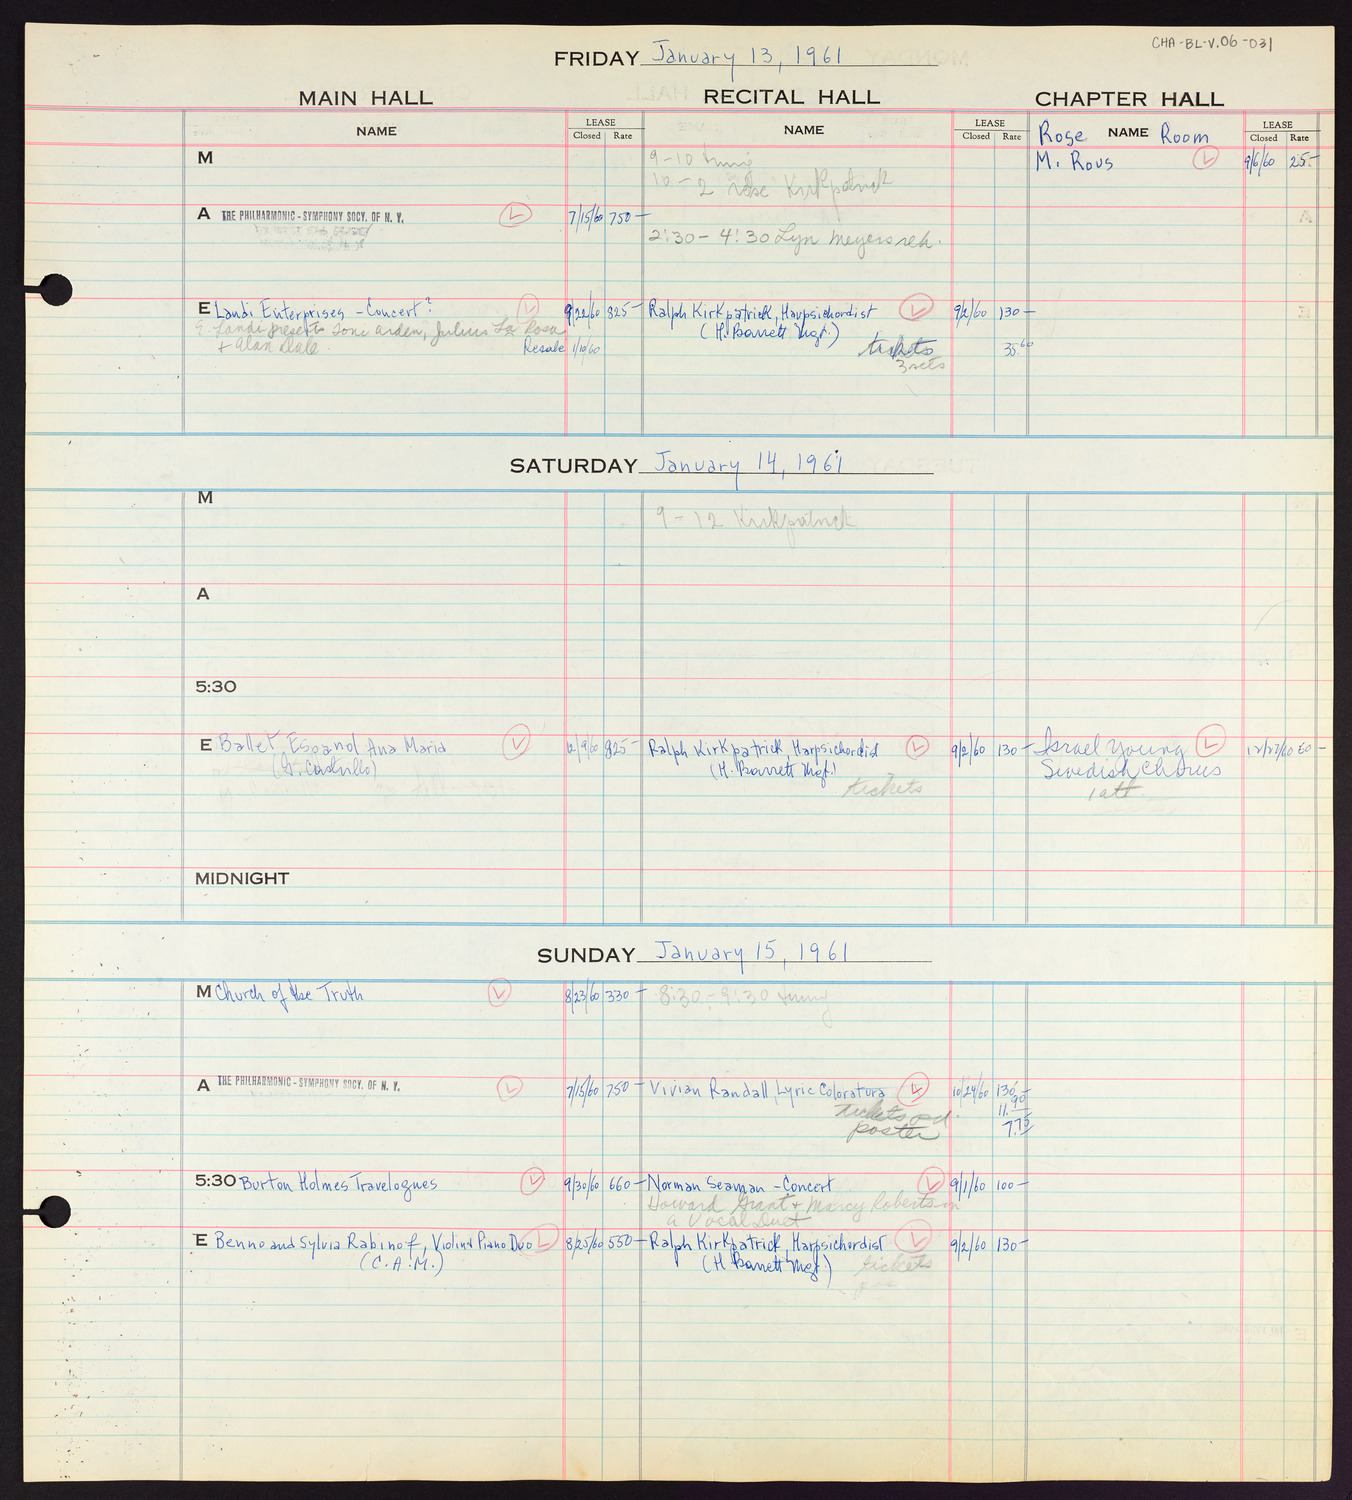 CHA-BL-V.06-031
FRIDAY January 13, 1961
MAIN HALL RECITAL HALL CHAPTER HALL
NAME LEASE Closed Rate NAME LEASE Closed Rate Rose NAME Room LEASE Closed Rate
M 9-10 tuning M. Rous 9/6/60 25.-
10-2 rose Kirkpatrick
A THE PHILHARMONIC-SYMPHONY SOCY. OF N. Y. 7/15/60 750-
2:30-4:30 Lyn Meyers reh.
E Landi Enterprises - Concert? 9/22/60 825- Ralph Kirkpatrick, Harpsichordist 9/2/60 130-
E. Landi presents Toni Arden, Julius La Rosa (H. Barrett Mgt.)
+ Alan Dale Resale 1/10/60 tickets 35.60
3 sets
SATURDAY January 14, 1961
M
9-12 Kirkpatrick
A
5:30
E Ballet Espanol Ana Maria 12/9/60 825- Ralph Kirkpatrick, Harpsichordist 9/2/60 130- Israel Young 12/27/60 60-
(G. Castrillo) (H. Barrett Mgt.) Swedish Chorus
tickets 1 att.
MIDNIGHT
SUNDAY January 15, 1961
M Church of the Truth 8/23/60 330- 8:30-9:30 tuning
A THE PHILHARMONIC-SYMPHONY SOCY. OF N. Y. 7/15/60 750- Vivian Randall, Lyric Coloratura 10/24/60 130-
tickets pd. 11.90
poster 7.75
5:30 Burton Holmes Travelogues 9/30/60 660- Norman Seaman - Concert 9/1/60 100-
Howard Grant + Marcy Roberts in
a Vocal Duet
E Benno and Sylvia Rabinof, Violin & Piano Duo 8/25/60 550- Ralph Kirkpatrick, Harpsichordist 9/2/60 130-
(C.A.M.) (H Barrett Mgt.) tickets